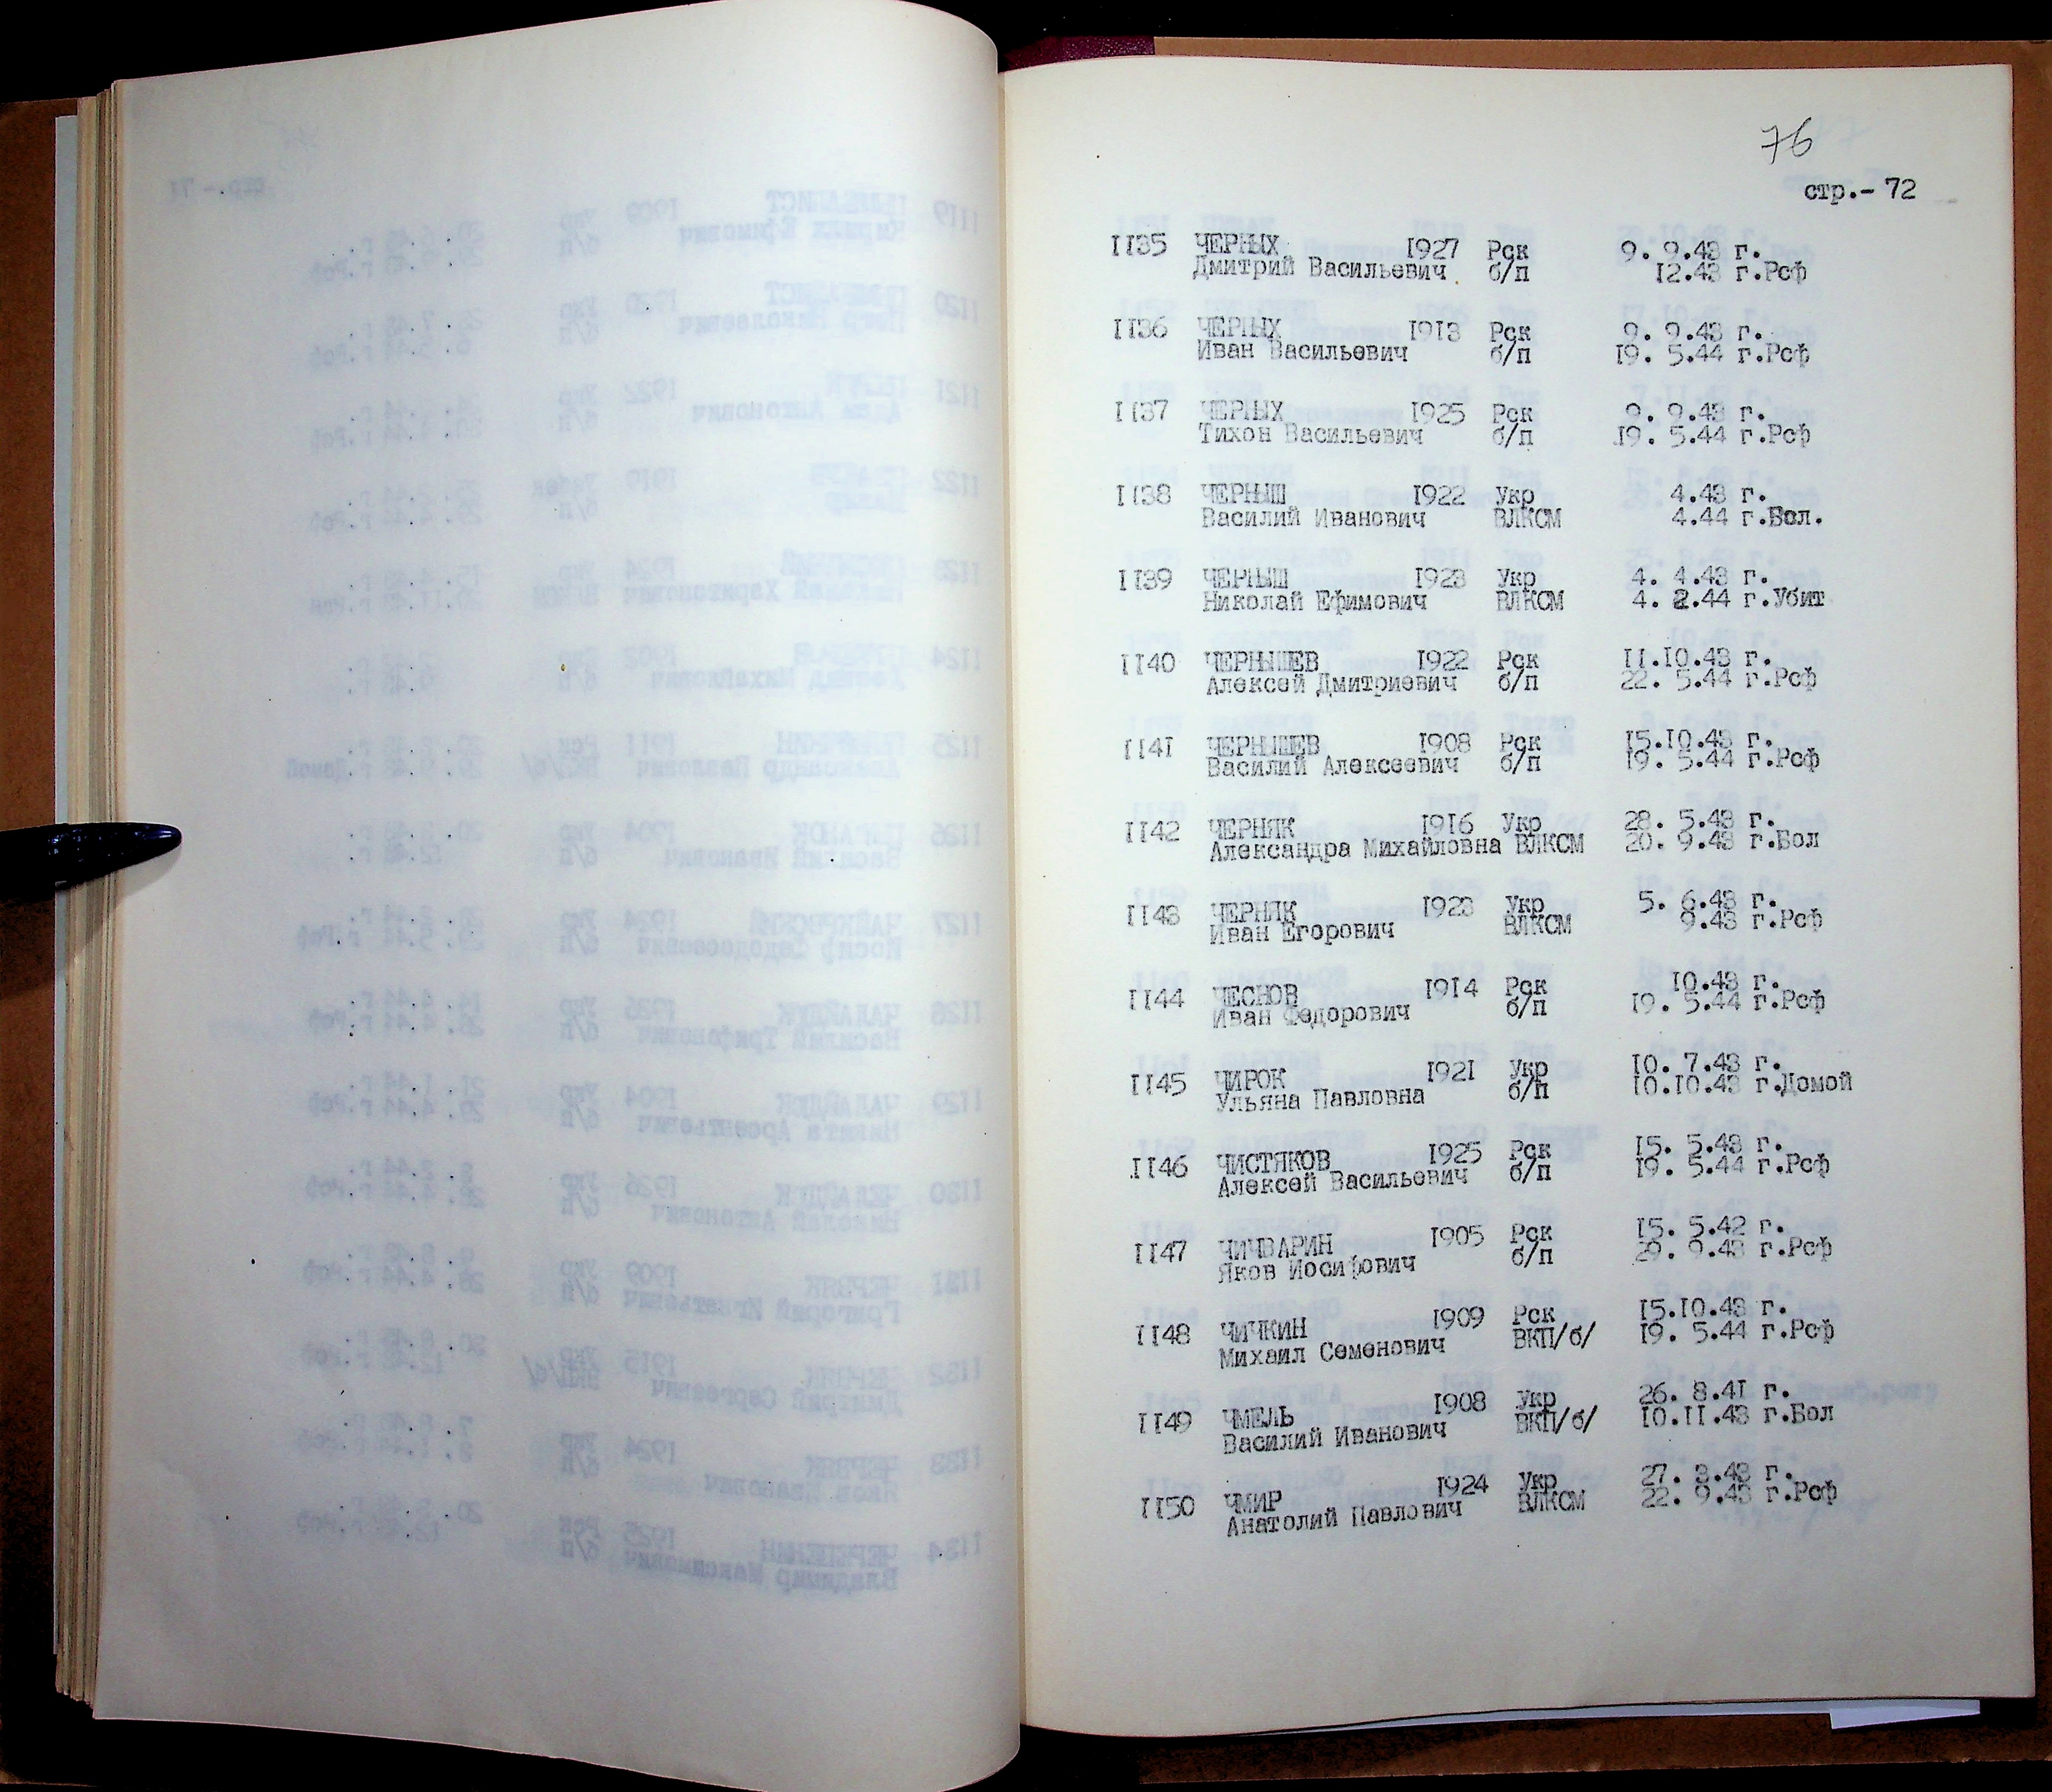 76
стр.- 72
1135 ЧЕРНЫХ 1927 Рск 9. 9.43 г.
Дмитрий Васильевич б/п 12.43 г.Рсф
1136 ЧЕРНЫХ 1913 Рск 9. 9.43 г.
Иван Васильевич б/п 19. 5.44 г.Рсф
1137 ЧЕРНЫХ 1925 Рск 9. 9.43 г.
Тихон Васильевич б/п 19. 5.44 г.Рсф
1138 ЧЕРНЫШ 1922 Укр 4.43 г.
Василий Иванович ВЛКСМ 4.44 г.Бол.
1139 ЧЕРНЫШ 1923 Укр 4. 4.43 г.
Николай Ефимович ВЛКСМ 4. 2.44 г.Убит
1140 ЧЕРНЫШЕВ 1922 Рск 11.10.43 г.
Алексей Дмитриевич б/п 22. 5.44 г.Рсф
1141 ЧЕРНЫШЕВ 1908 Рск 15.10.43 г.
Василий Алексеевич б/п 19. 5.44 г.Рсф
1142 ЧЕРНЯК 1916 Укр 28. 5.43 г.
Александра Михайловна ВЛКСМ 20. 9.43 г.Бол
1143 ЧЕРНЯК 1923 Укр 5. 6.43 г.
Иван Егорович ВЛКСМ 9.43 г.Рсф
1144 ЧЕСНОВ 1914 Рск 10.43 г.
Иван Федорович б/п 19. 5.44 г.Рсф
1145 ЧИРОК 1921 Укр 10. 7.43 г.
Ульяна Павловна б/п 10.10.43 г.Домой
1146 ЧИСТЯКОВ 1925 Рск 15. 5.43 г.
Алексей Васильевич б/п 19. 5.44 г.Рсф
1147 ЧИЧВАРИН 1905 Рск 15. 5.42 г.
Яков Иосифович б/п 29. 9.43 г.Рсф
1148 ЧИЧКИН 1909 Рск 15.10.43 г.
Михаил Семенович ВКП/б/ 19. 5.44 г.Рсф
1149 ЧМЕЛЬ 1908 Укр 26. 8.41 г.
Василий Иванович ВКП/б/ 10.11.43 г.Бол
1150 ЧМИР 1924 Укр 27. 3.43 г.
Анатолий Павлович ВЛКСМ 22. 9.43 г.Рсф